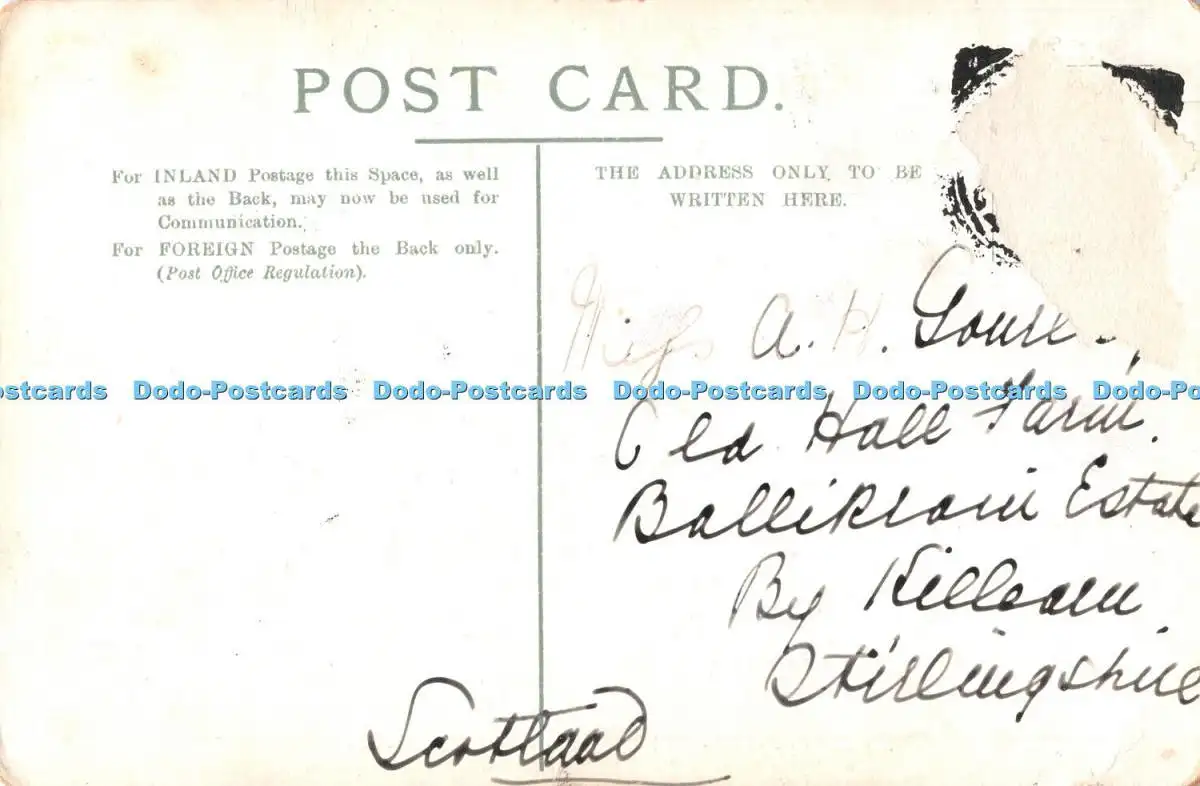 POST CARD.
For INLAND Postage this Space, as well
as the Back, may now be used for
Communication.
For FOREIGN Postage the Back only.
(Post Office Regulation).
THE ADDRESS ONLY TO BE
WRITTEN HERE.
Miss A. H.
ostcards Dodo-Postcards Dodo-Postcards Dodo-Postcards Dodo-Postcards Dodo-Po
Old Hall Farm.
Ballikrain Estate
By Killearn
Stirlingshire
Scotland